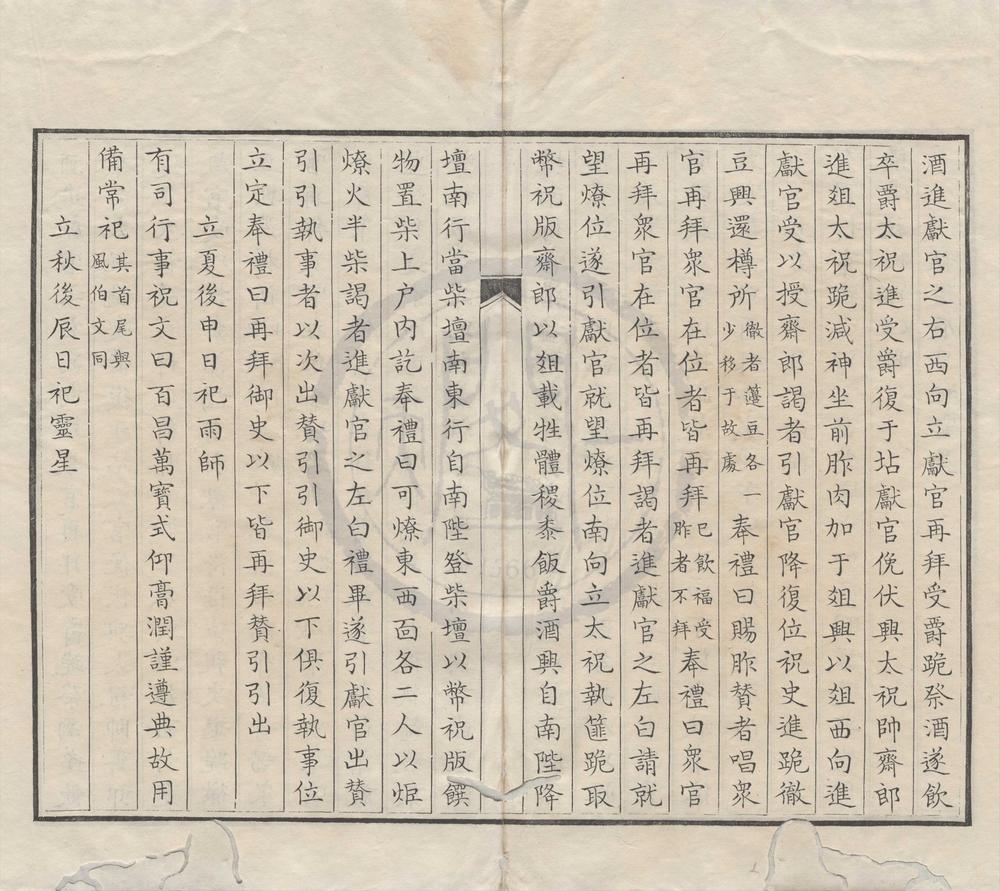 酒進獻官之右西向立獻官再拜受爵跪祭酒遂飲
卒爵太祝進受爵復于坫獻官俛伏興太祝帥齋郎
進俎太祝跪減神坐前胙肉加于俎興以俎西向進
獻官受以授齋郎謁者引獻官降復位祝史進跪徹
豆興還樽所徹者籩豆各一少移于故處奉禮曰賜胙贊者唱衆
官再拜衆官在位者皆再拜已飲福受胙者不拜奉禮曰衆官
再拜衆官在位者皆再拜謁者進獻官之左白請就
望燎位遂引獻官就望燎位南向立太祝執篚跪取
幣祝版齋郎以俎載牲體稷黍飯爵酒興自南陛降
壇南行當柴壇南東行自南陛登柴壇以幣祝版饌
物置柴上户内訖奉禮曰可燎東西面各二人以炬
燎火半柴謁者進獻官之左白禮畢遂引獻官出贊
引引執事者以次出贊引引御史以下俱復執事位
立定奉禮曰再拜御史以下皆再拜贊引引出
立夏後申日祀雨師
有司行事祝文曰百昌萬寶式仰膏潤謹遵典故用
備常祀其首尾與風伯文同
立秋後辰日祀靈星